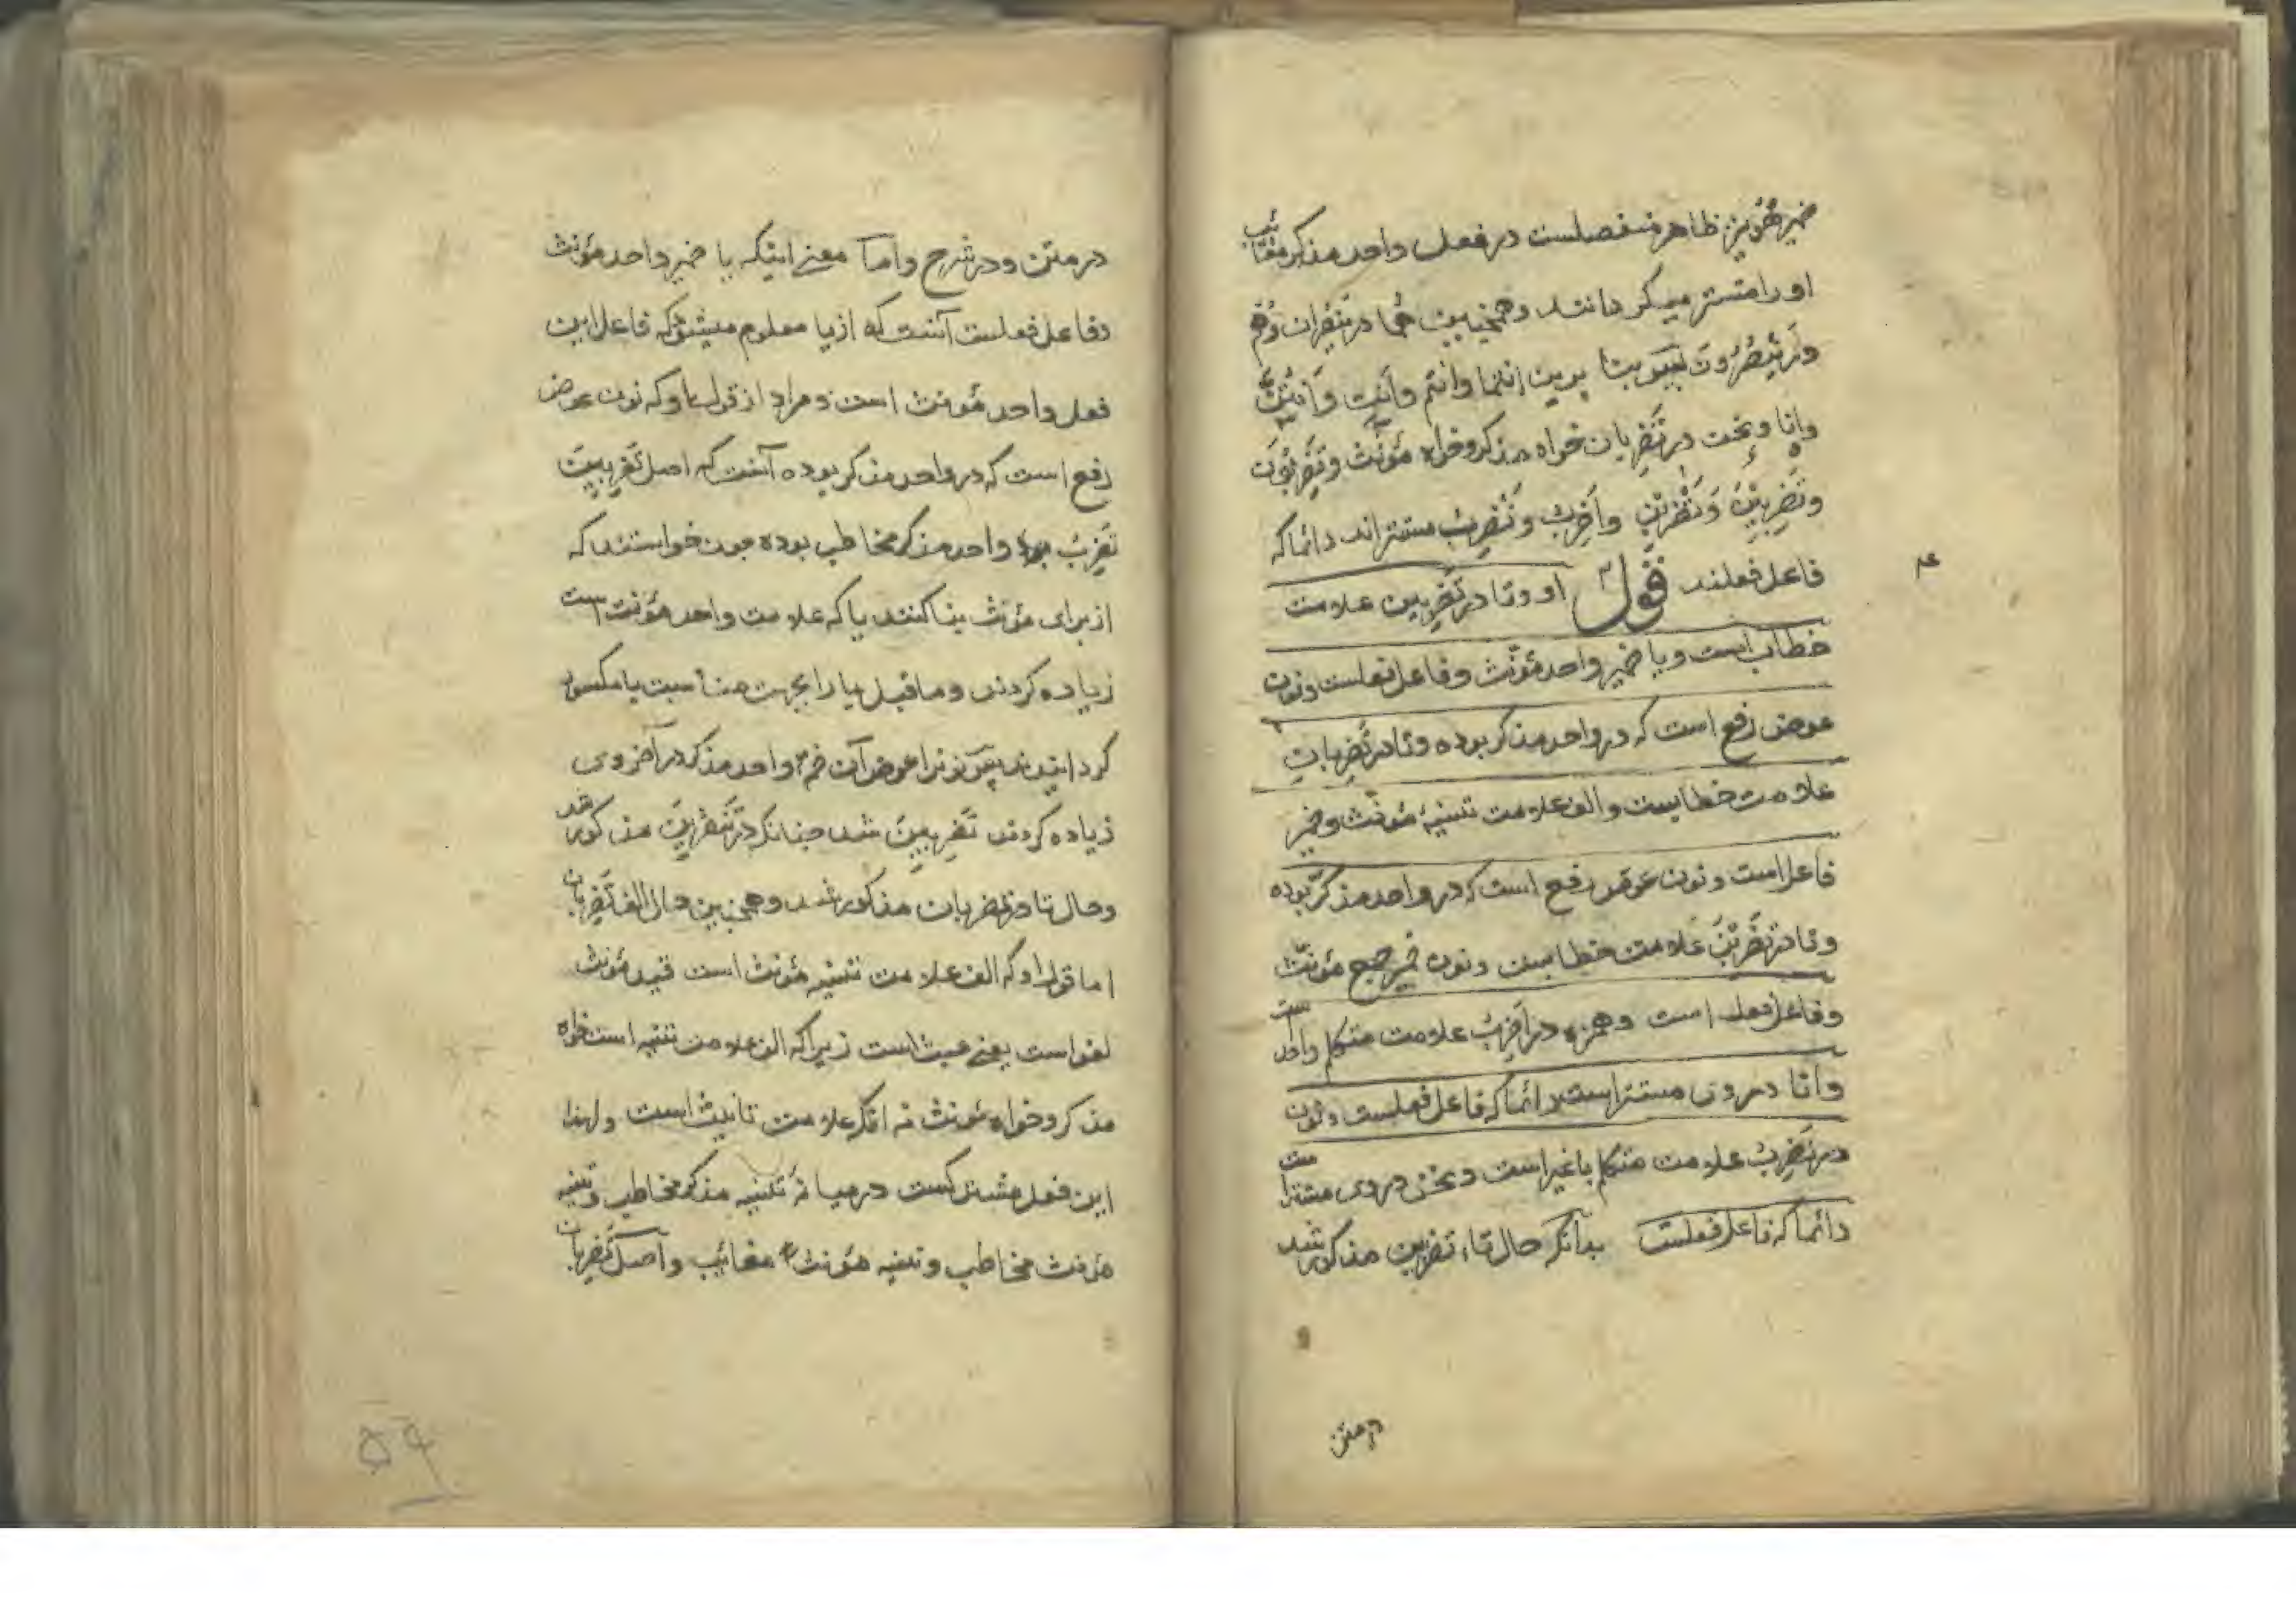 ضمیر هو نیز ظاهر منفصلست در فعل واحد مذکر مغایب
او را مستتر میکردانند و همچنین هما در یضربان و هم
در یضربون
وانا و نحن در تضربان خواه مذکر و خواه مؤنث و تضربون
و تضربین و تضربن و اضرب و نضرب مستتراند دائما که
فاعل فعلند قوله او و تا در تضربین علامت
خطاب است و یا ضمیر واحد مؤنث و فاعل فعلست و نون
عوض رفع است که در واحد مذکر بوده و تا در تضربان
علامت خطابست و الف علامت تثنیه مؤنث و ضمیر
فاعل است و نون عوض رفع است که در واحد مذکر بوده
و تا در تضربن علامت خطابست و نون ضمیر جمع مؤنث
و فاعل فعل است و همزه در اضرب علامت متکلم واحد است
و انا در وی مستتر است دائما که فاعل فعلست و نون
در نضرب علامت متکلم با غیر است و نحن در وی مستتر است
دائما که فاعل فعلست بدانکه حال تاء تضربین مذکور شد
در متن
در متن و در شرح و اما معنی اینکه یا ضمیر واحد مؤنث
و فاعل فعلست آنست که از یا معلوم میشود که فاعل این
فعل واحد مؤنث است و مراد از قول او که نون عوض
رفع است که در واحد مذکر بوده آنست که اصل تضربین
تضرب بود واحد مذکر مخاطب بوده چون خواستند که
از برای مؤنث بنا کنند یا که علامت واحد مؤنث است
زیاده کردند و ماقبل یا را بجهت مناسبت یا مکسور
کردانیدند پس نونرا عوض آن ضمه واحد مذکر در آخر وی
زیاده کردند تضربین شد چنانکه در تنضربین مذکور شد
و حال تا در تضربان مذکور شد و همچنین حال الف تضربان
اما قول او که الف علامت تثنیه مؤنث است قید مؤنث
لغو است یعنی عبث است زیرا که الف علامت تثنیه است خواه
مذکر و خواه مؤنث نه انکه علامت تانیث است و لهذا
این فعل مشترکست در میانه تثنیه مذکر مخاطب و تثنیه
مؤنث مخاطب و تثنیه مؤنث مغایب و اصل تضربان
۵۹